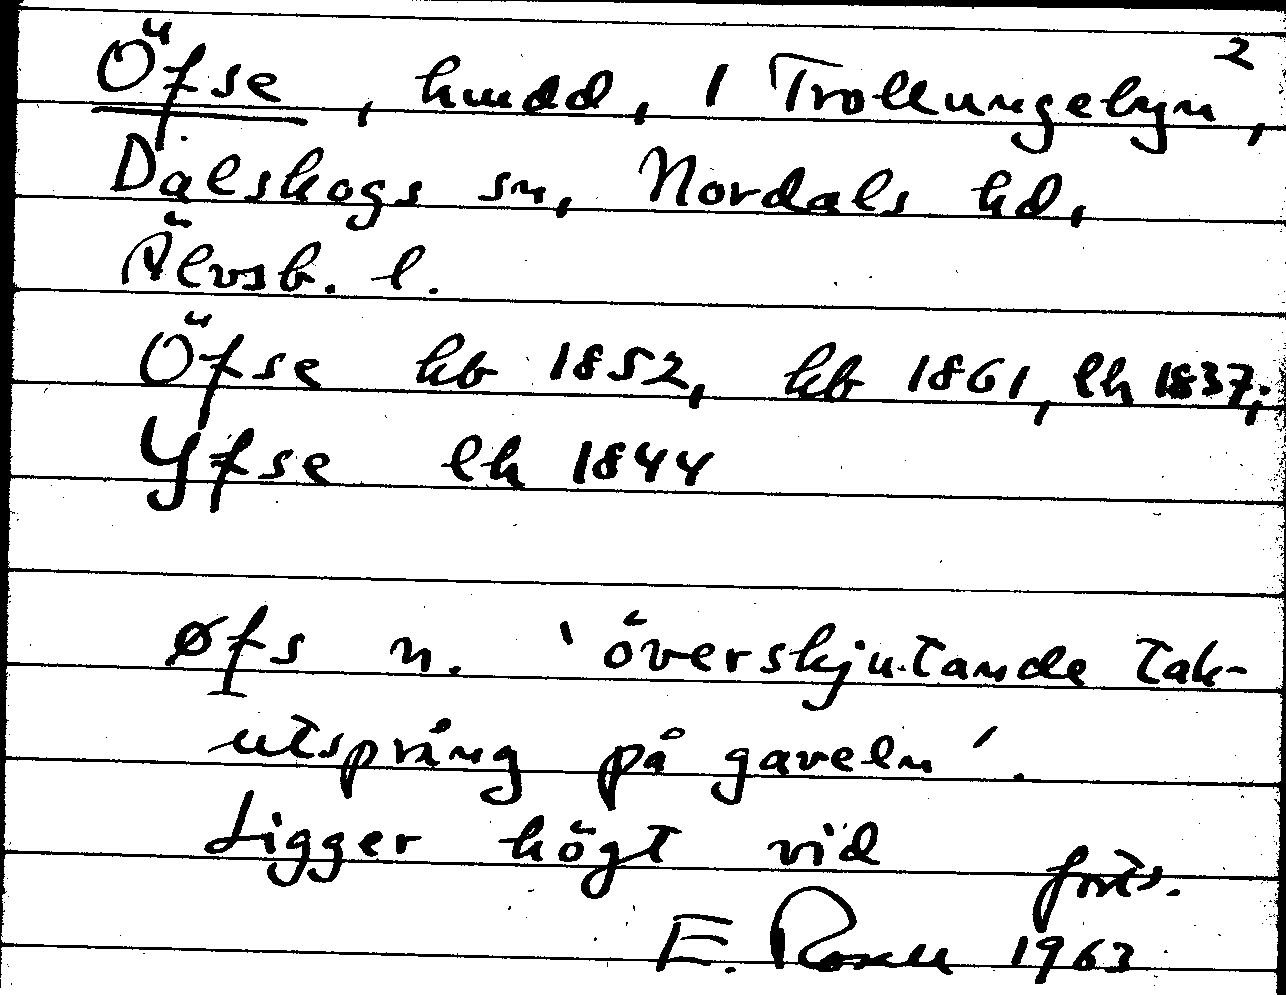 2
Öfse, hmdd, 1 Trollungebyn,
Dalskogs sn, Nordals hd,
Älvsb. l.
Öfse hb 1852, hb 1861, lh 1837;
Yfse lh 1844
øfs n. 'överskjutande tak-
utsprång på gaveln'.
Ligger högt vid forts.
E. Rosell 1963